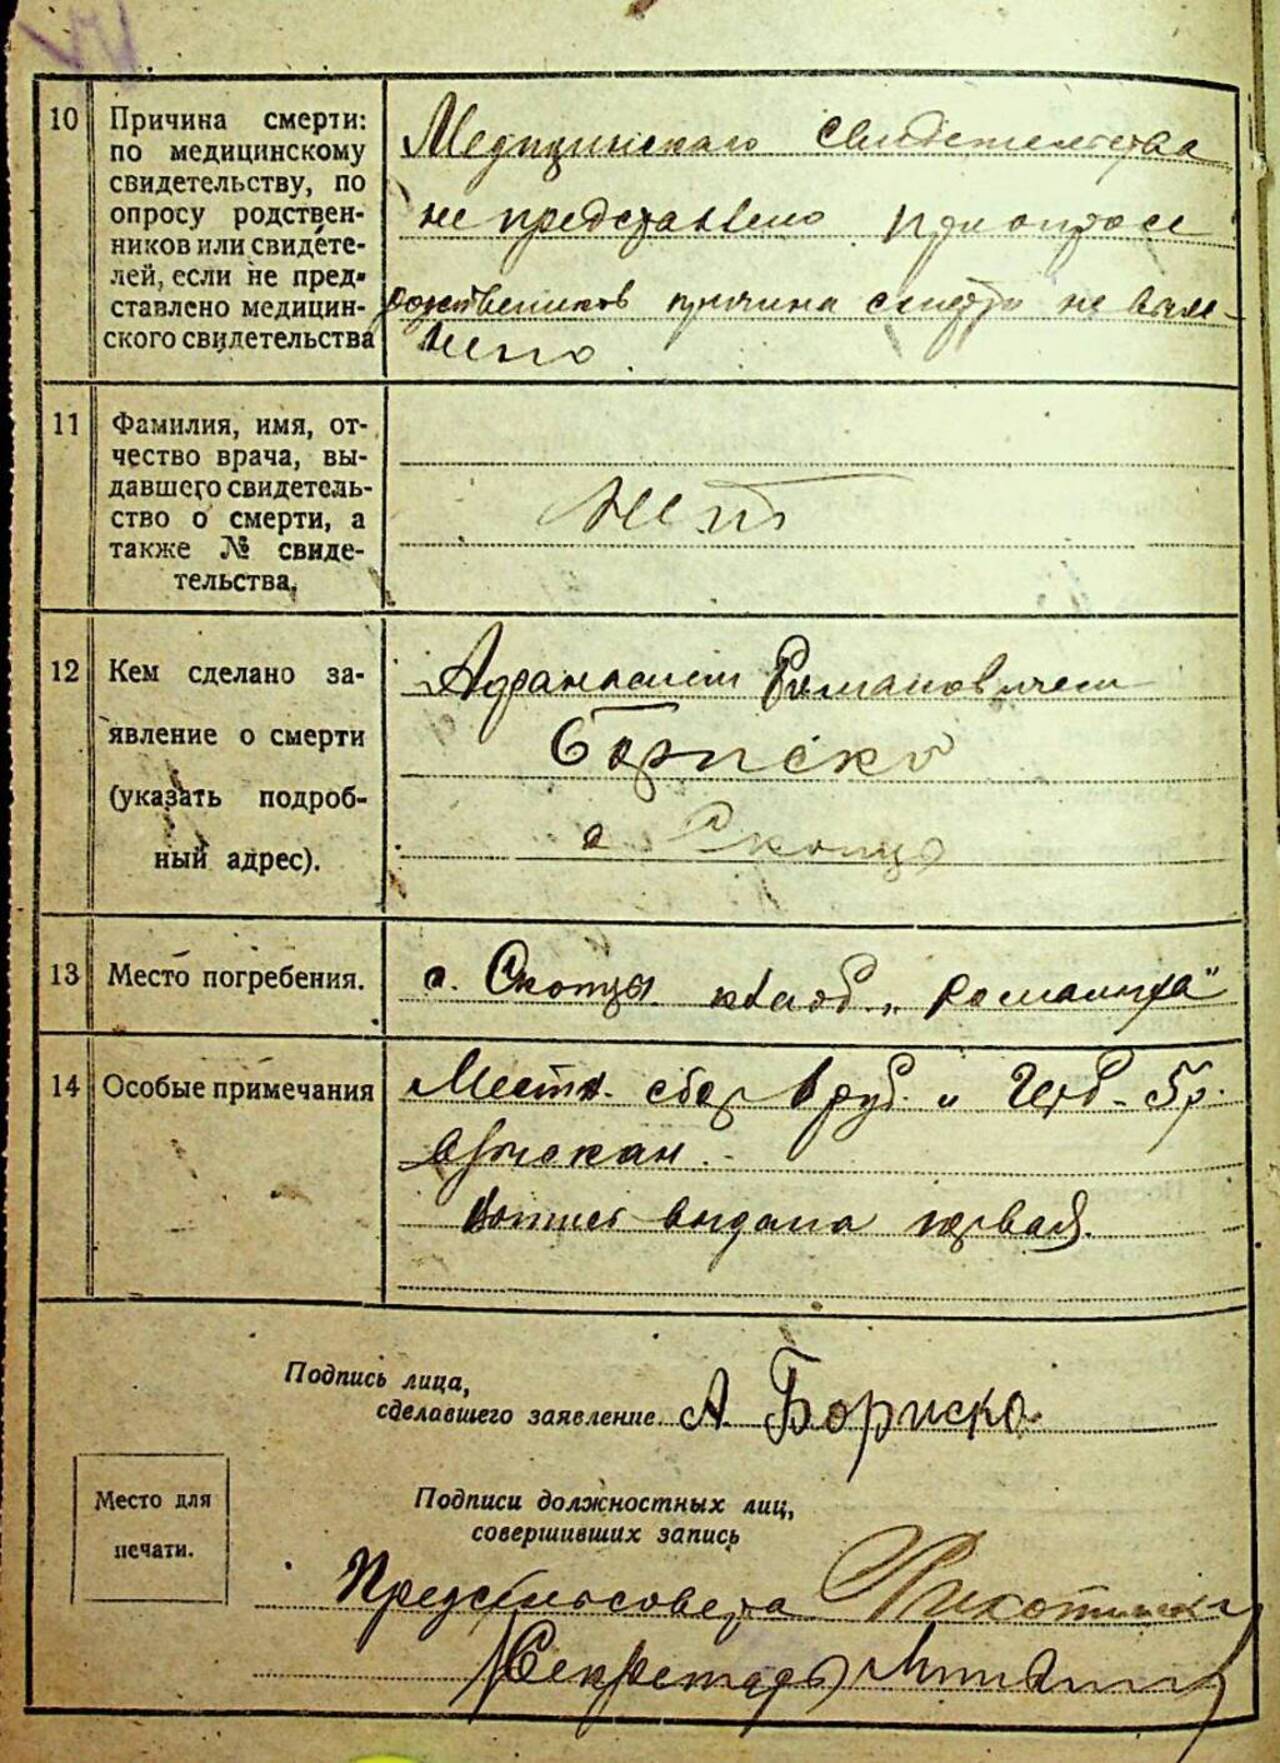 10
Причина смерти:
по медицинскому
свидетельству, по
опросу родствен-
ников или свидете-
лей, если не пред-
ставлено медицин-
ского свидетельства
Медицинскаго свидетельства
не представлено при опросе
родствеников причина смерти не выяс-
нено.
11
Фамилия, имя, от-
чество врача, вы-
давшего свидетель-
ство о смерти, а
также № свиде-
тельства.
нет
12
Кем сделано за-
явление о смерти
(указать подроб-
ный адрес).
Афанасием Романовичем
Бориско
с Скопцы
13
Место погребения.
с. Скопцы кладб. „Романиха"
14
Особые примечания
Местн. сбор руб. и Герб - 5р.
взыскан.
выдана первая.
Подпись лица,
сделавшего заявление А Бориско
Место для
печати.
Подписи должностных лиц,
совершивших запись
Предсельсовета
Секретарь